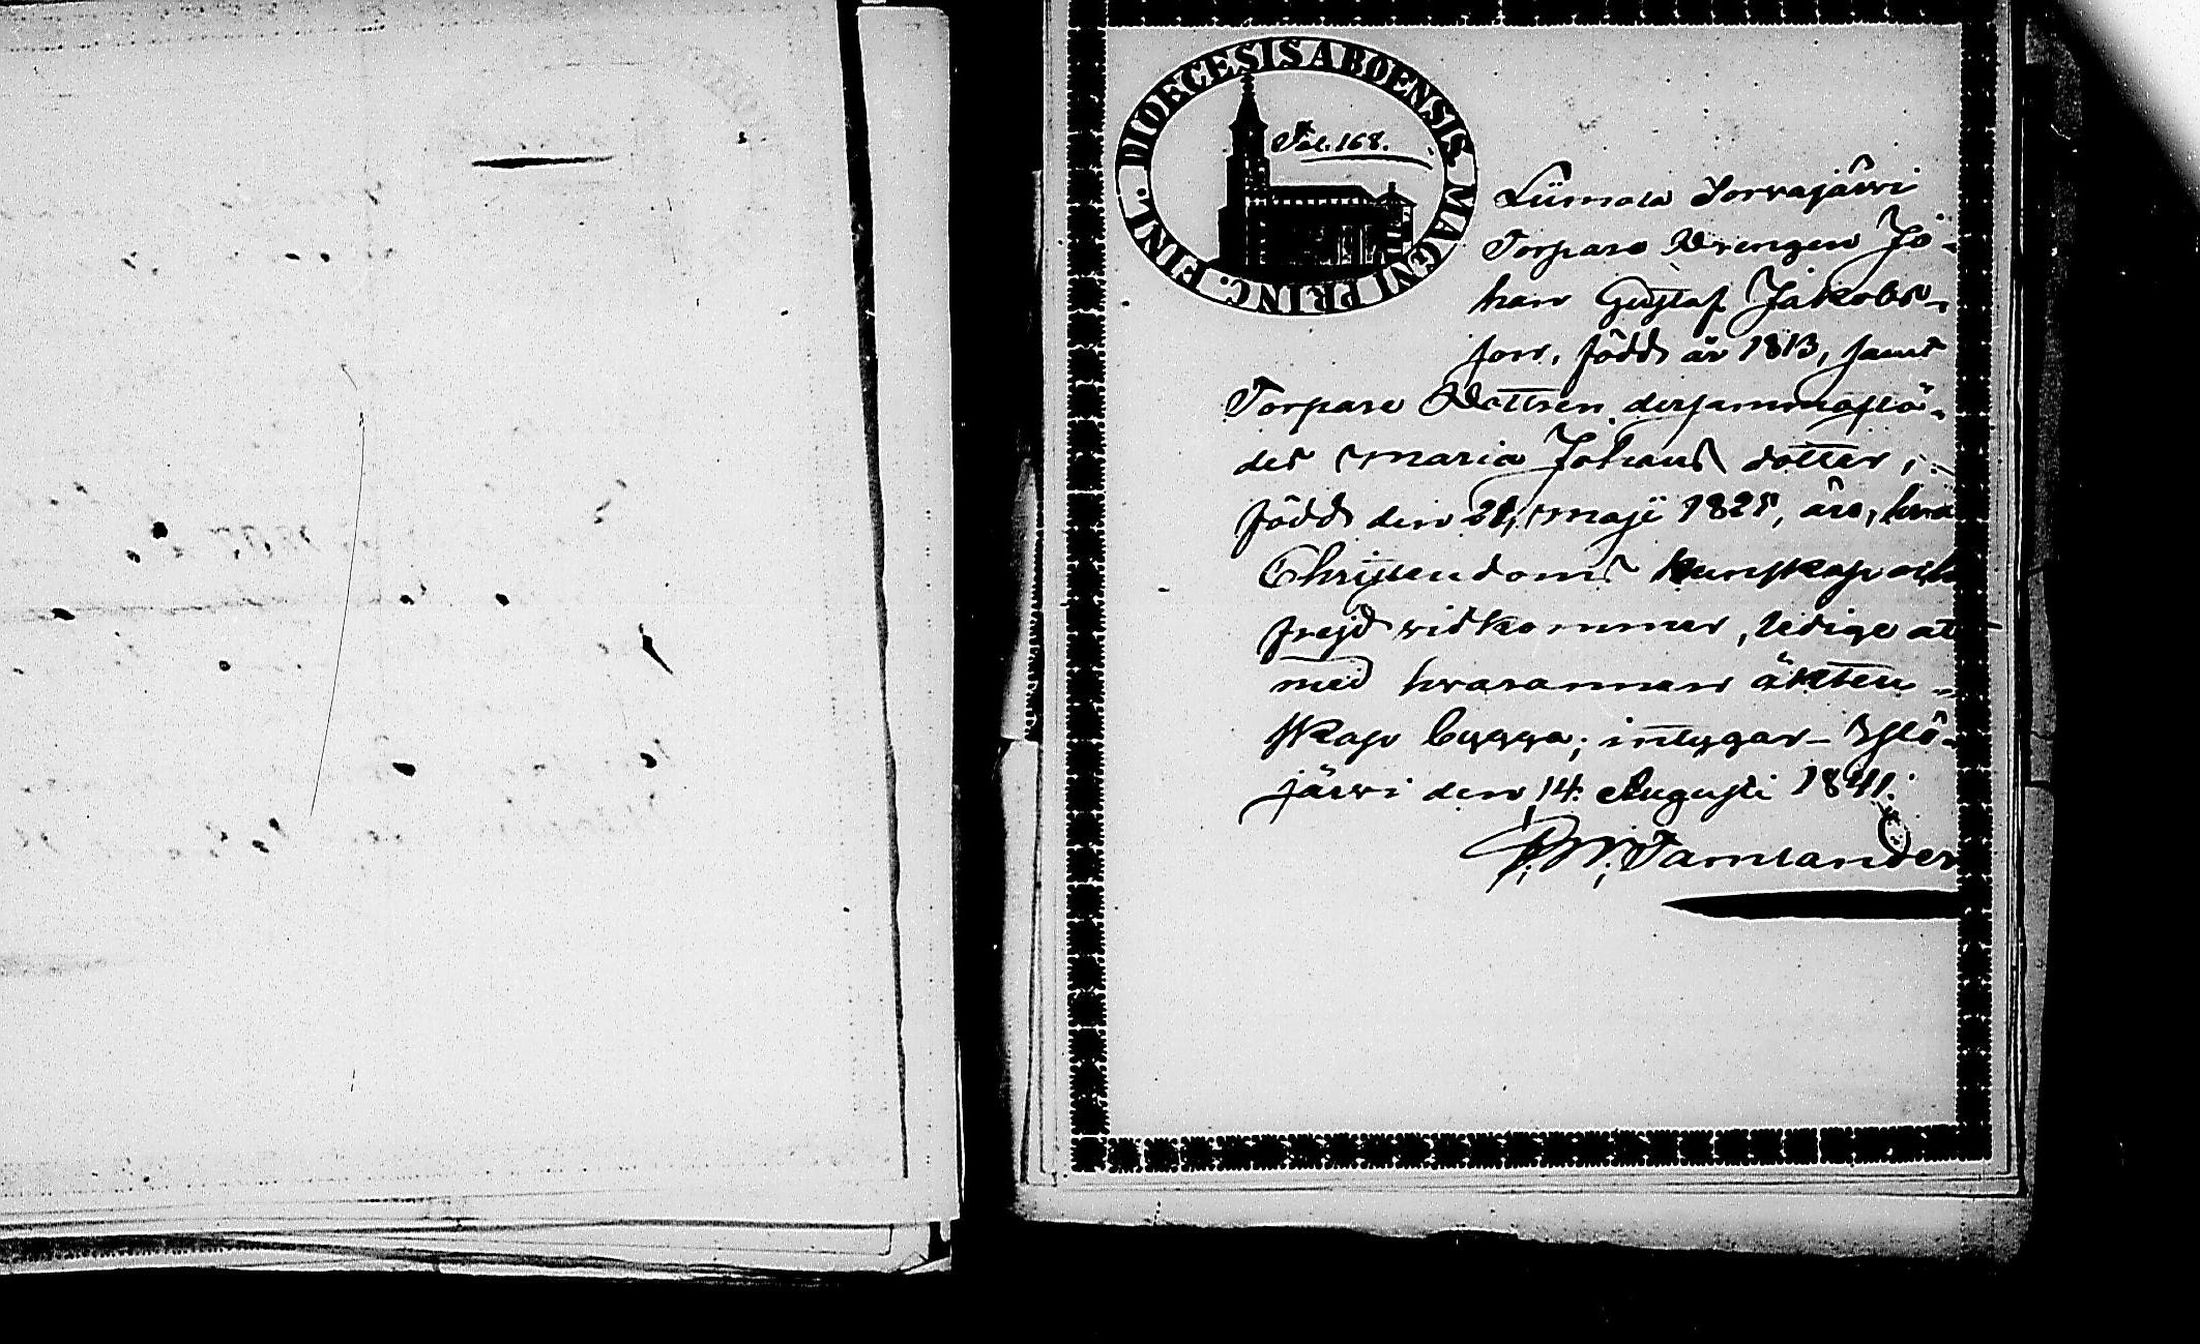 DIOECESIS ABOENSIS. MAGNI PRINC. FINL.
Fol. 168.
Liimola Sorvajärvi
Torpare Drengen Jo-
han Gustaf Jakobs-
son, född år 1813, samt
Torpare Dottren dersammastä-
des Maria Johans dotter,
född den 21 Maji 1825, äro, hvad
Christendoms kunskap och
frejd vidkommer, ledige at
med hvarannan äkten-
skap bygga; intygar - Ylö-
järvi den 14. Augusti 1841.
Tamlander